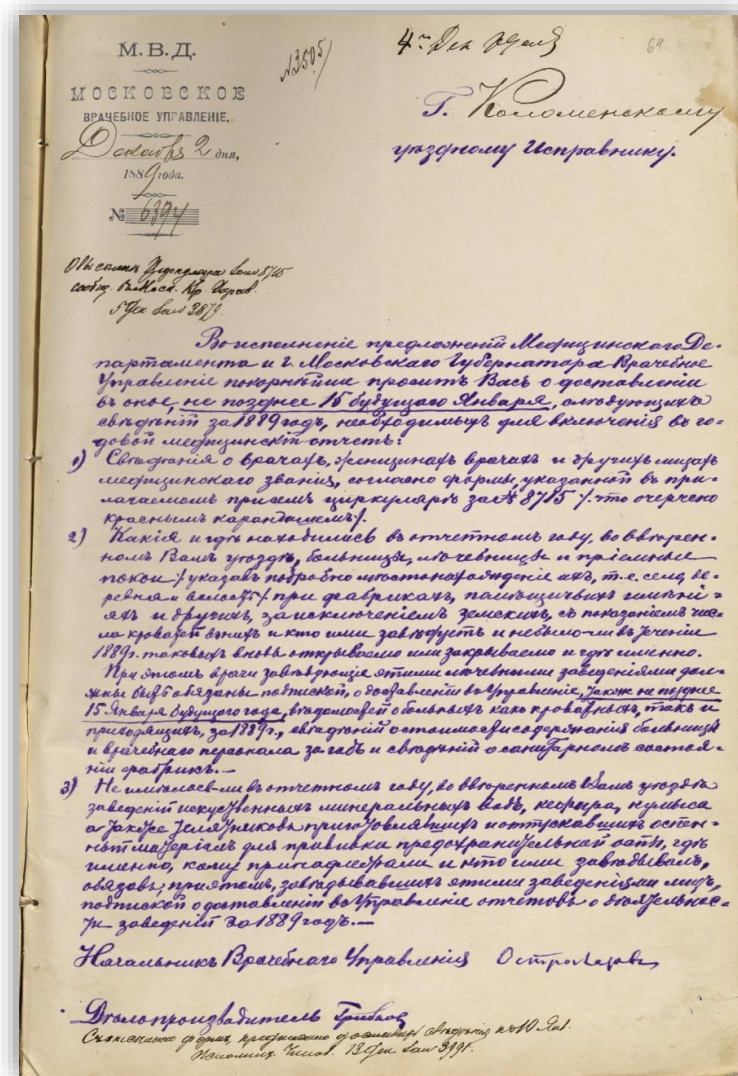 М. В. Д.
МОСКОВСКОЕ
ВРАЧЕБНОЕ УПРАВЛЕНІЕ.
Декабря 2 дня,
1889 года.
№ 6394
№3505
4го Дек
64
Г. Коломенскому
уѣздному Исправнику.
5 Дек за № 3879.
Во исполненіе предложеній Медицинскаго Де-
партамента и г. Московскаго Губернатора Врачебное
Управленіе покорнѣйше проситъ Васъ о доставленіи
въ оное, не позднее 15 будущаго Января, слѣдующихъ
свѣдѣній за 1889 годъ, необходимыхъ для включенія въ го-
довой медицинскій отчетъ:
1) Свѣдѣнія о врачахъ, женщинахъ врачахъ и другихъ лицахъ
медицинскаго званія, согласно формы, указанной въ при-
лагаемомъ при семъ циркулярѣ за № 8715 /. что очерчено
краснымъ карандашемъ/.
2) Какія и гдѣ находились въ отчетномъ году, во ввѣрен-
номъ Вамъ уѣздѣ, больницы, лечебницы и пріемные
покои /. указавъ подробно мѣстонахожденіе ихъ, т.е. село, де-
ревня и волость/. при фабрикахъ, помѣщичьихъ имѣні-
яхъ и другихъ, за исключеніемъ земскихъ, съ показаніемъ чис-
ла кроватей въ нихъ и кто ими завѣдуетъ и не было-ли въ теченіи
1889 г. таковыхъ вновь открываемо или закрываемо и гдѣ именно.
При этомъ врачи завѣдующіе этими лечебными заведеніями дол-
жны быть обязаны подпиской, о доставленіи въ Управленіе, также не позднее
15 Января будущаго года, вѣдомостей о больныхъ какъ кроватныхъ, такъ и
приходящихъ, за 1889 г., свѣдѣній о стоимости содержанія больницы
и врачебнаго персонала за годъ и свѣдѣній о санитарномъ состоя-
ніи фабрикъ.—
3) Не имѣлось-ли въ отчетномъ году, во ввѣренномъ Вамъ уѣздѣ
заведеній искусственныхъ минеральныхъ водъ, кефира, кумыса
а также телятниковъ приготовлявшихъ и отпускавшихъ оспен-
ный матеріалъ для прививки предохранительной оспы, гдѣ
именно, кому принадлежали и кто ими завѣдывалъ,
обязавъ, при этомъ, завѣдывавшихъ этими заведеніями лицъ,
подпиской о доставленіи въ Управленіе отчетовъ о дѣятельнос-
ти заведеній за 1889 годъ.—
Начальникъ Врачебнаго Управленія Остроглазовъ
Дѣлопроизводитель Грибковъ
13 Дек за № 3991.